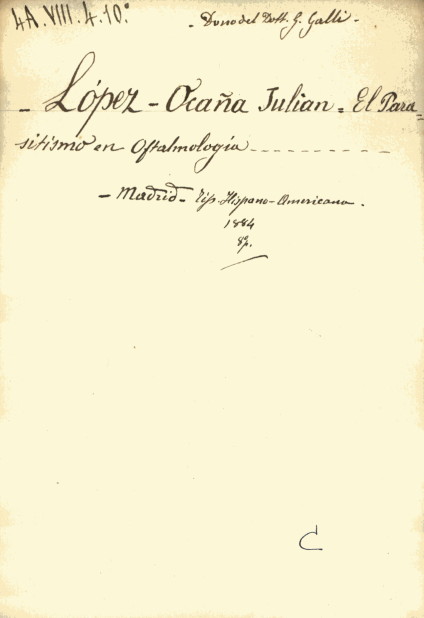 4A.VIII.4.10°
- Dono del Dott. G. Galli -
- López - Ocaña Julian = El Para=
sitismo en Oftalmología
- Madrid - Tip. Hispano - Americana.
1884
8º.
C